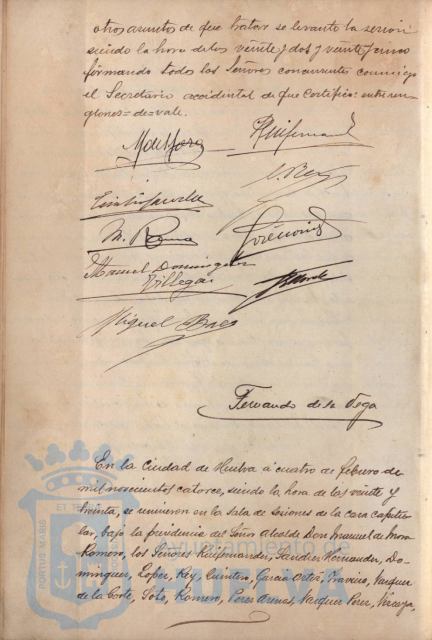 otros asuntos de que tratar se levantó la sesión
siendo la hora de las veinte y dos y veinte y cinco
firmando todos los Señores concurrentes conmigo
el Secretario accidental de que certifico: entre ren-
glones = de = vale.
M de Mora
J. Rey
M. Romero
Manuel Dominguez
Villegas
Miguel Báez
Fernando de la Vega
En la Ciudad de Huelva á cuatro de Febrero de
mil novecientos catorce, siendo la hora de las veinte y
treinta, se reunieron en la Sala de Sesiones de la casa capitu-
lar, bajo la presidencia del Señor Alcalde Don Manuel de Mora
Romero, los Señores Ruifernandez, Paredes Hernandez, Do-
minguez, Lopez, Rey, Quintero, Garcia Ortiz, Travieso, Vazquez
de la Corte, Soto, Romero, Perez Arenas, Vazquez Perez, Vizcaya,
PORTUS MARIS
Ayuntamiento de
HUELVA